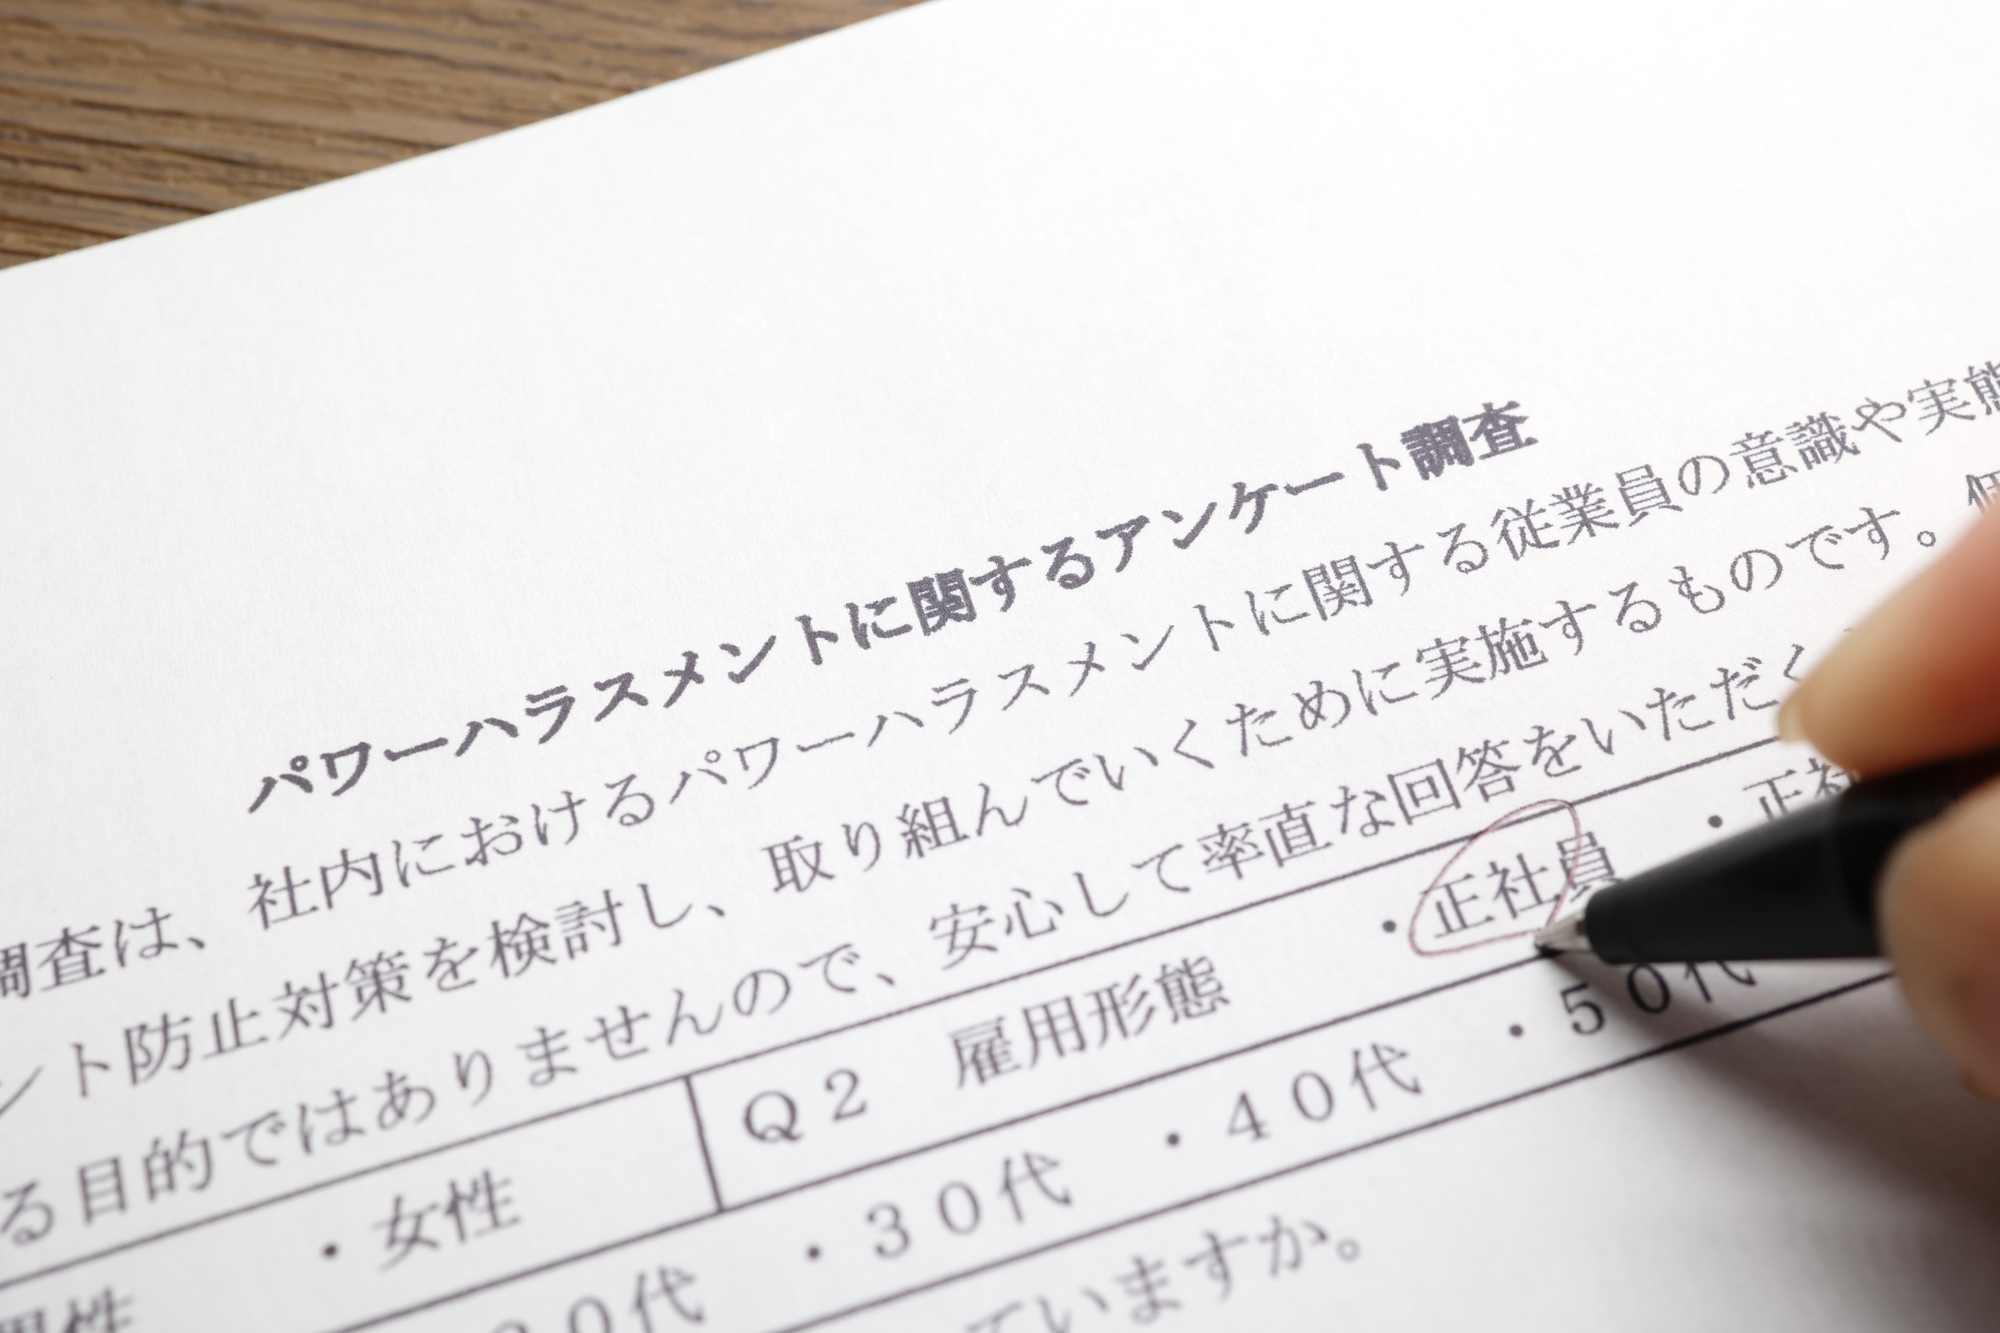 パワーハラスメントに関するアンケート調査
調査は、社内におけるパワーハラスメントに関する従業員の意識や実態
ント防止対策を検討し、取り組んでいくために実施するものです。個
る目的ではありませんので、安心して率直な回答をいただく
男性 ・女性 Q2 雇用形態 ・正社員 ・正社
0代 ・30代 ・40代 ・50代
ていますか。